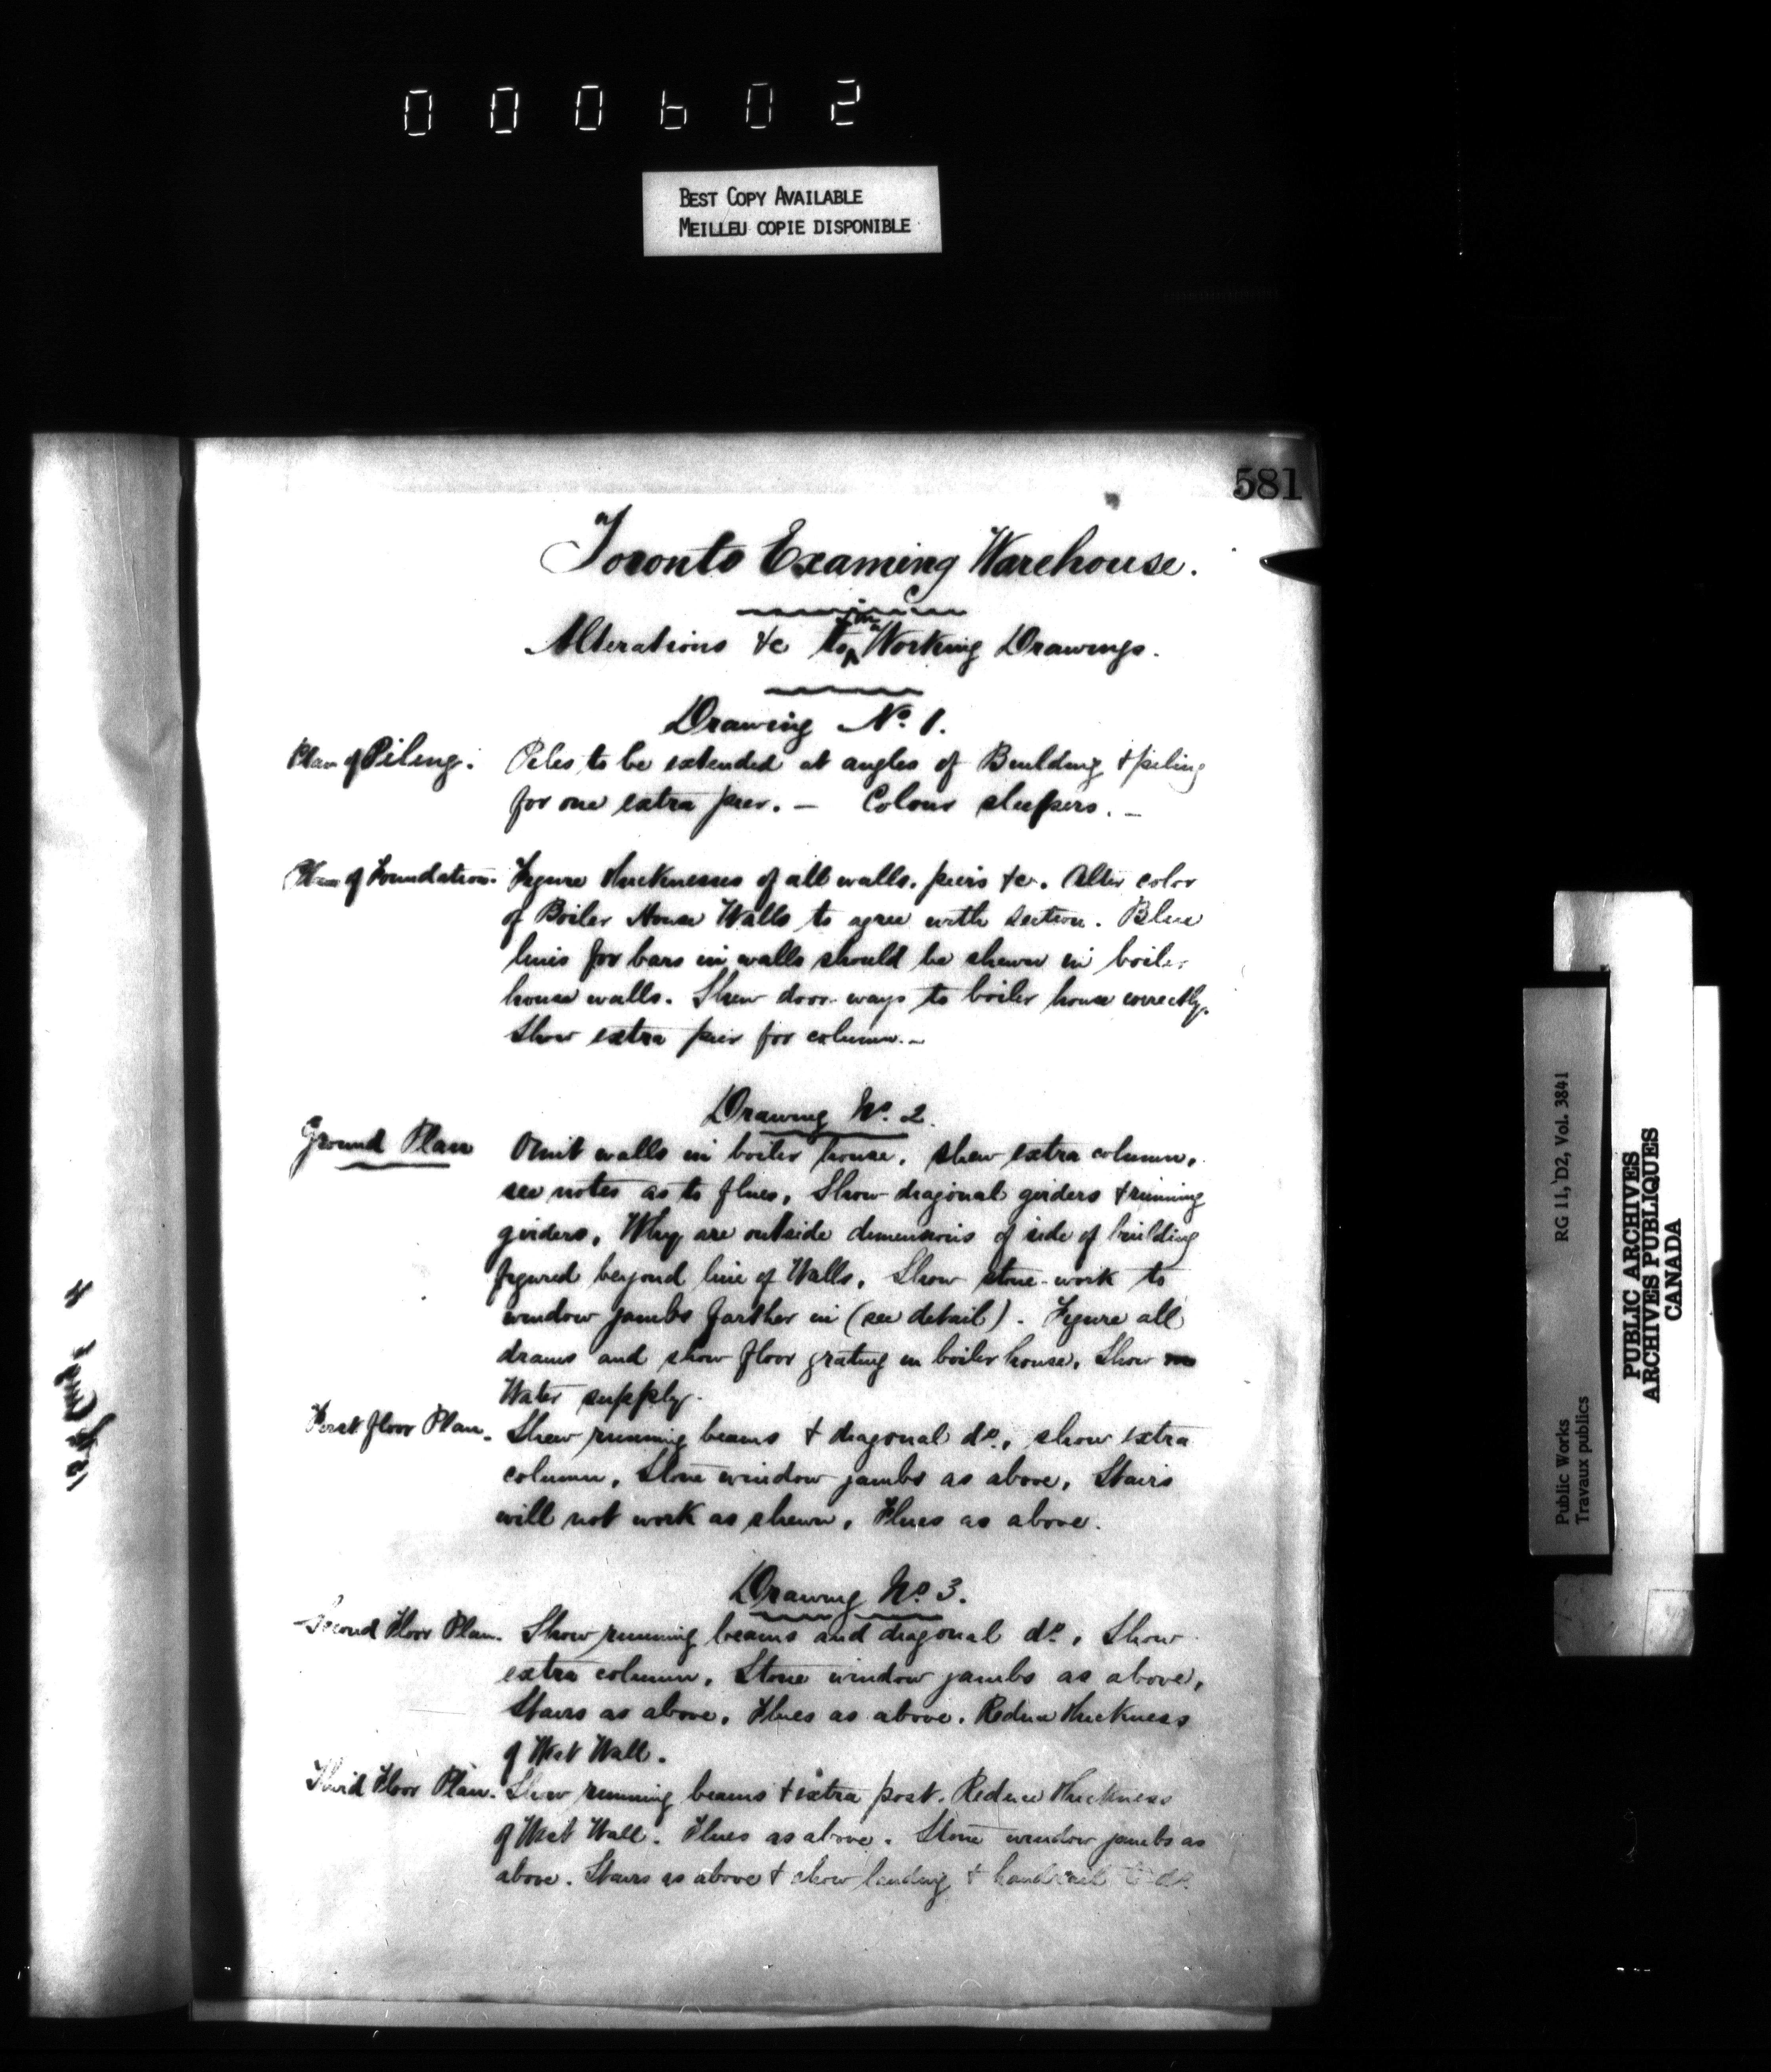 000602
BEST COPY AVAILABLE
MEILLEU COPIE DISPONIBLE
581
Toronto Examing Warehouse.
Alterations &c to the Working Drawings.
Drawing No. 1.
Plan of Piling. Piles to be extended at angles of Building & piling
for one extra pier. — Colour sleepers. —
Plan of Foundation. Figure thicknesses of all walls, piers &c. Alter color
of Boiler House Walls to agree with section. Blue
lines for bars in walls should be shewn in boiler
house walls. Shew door-ways to boiler house correctly.
Show extra pier for column. —
Drawing No. 2.
Ground Plan Omit walls in boiler house, shew extra column,
see notes as to flues, Show diagonal girders & running
girders, Why are outside dimensions of side of building
figured beyond line of Walls, Show stone-work to
window jambs farther in (see detail). Figure all
drains and show floor grating in boiler house, Show
Water supply.
First floor Plan. Shew running beams & diagonal do., show extra
column, Stone window jambs as above, Stairs
will not work as shewn, Flues as above.
Drawing No. 3.
Second Floor Plan. Show running beams and diagonal do., Show
extra column, Stone window jambs as above,
Stairs as above, Flues as above. Reduce thickness
of West Wall.
Third Floor Plan. Show running beams & extra post. Reduce thickness
of West Wall. Flues as above. Stone window jambs as
above. Stairs as above & show landing & handrail to do.
RG 11, D2, Vol. 3841
Public Works
Travaux publics
PUBLIC ARCHIVES
ARCHIVES PUBLIQUES
CANADA